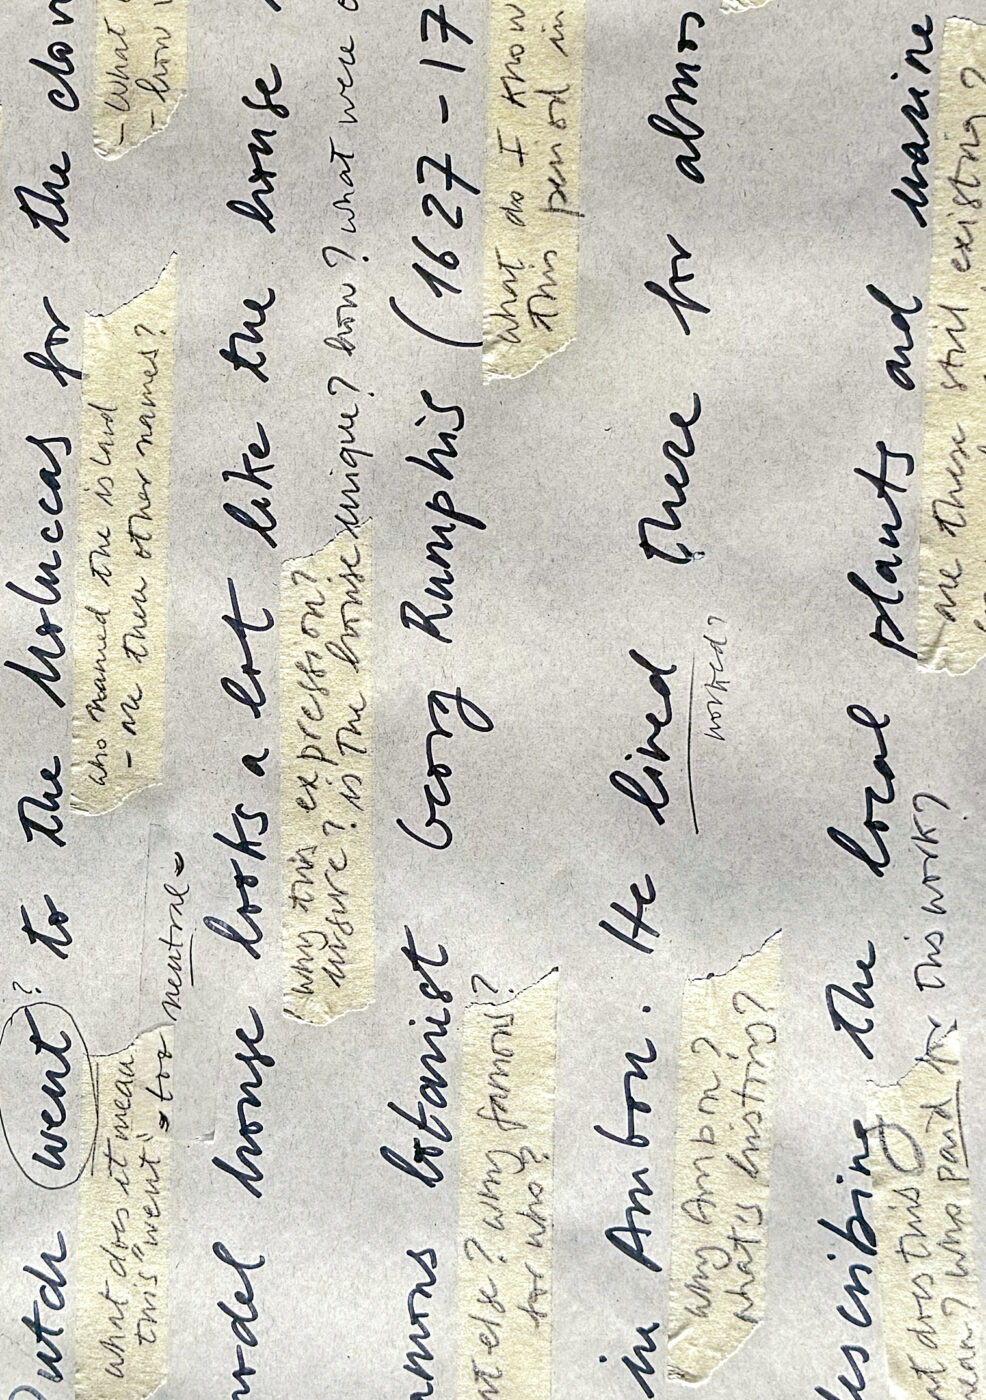 Dutch went ? to the Moluccas for the clov
what does it mean
this "went"
→ too
neutral
who named the island
- are there other names?
- What
- how
model house looks a lot like the house
why this expression?
unsure? is the house unique? how? what were
famous botanist Georg Rumphis (1627 - 17
else? why famous?
for who?
What do I know
this period in
in Ambon. He lived there for almos
why Ambon?
what's history?
worked?
describing the local plants and marine
does this
mean? who paid for this work?
are these still existing?